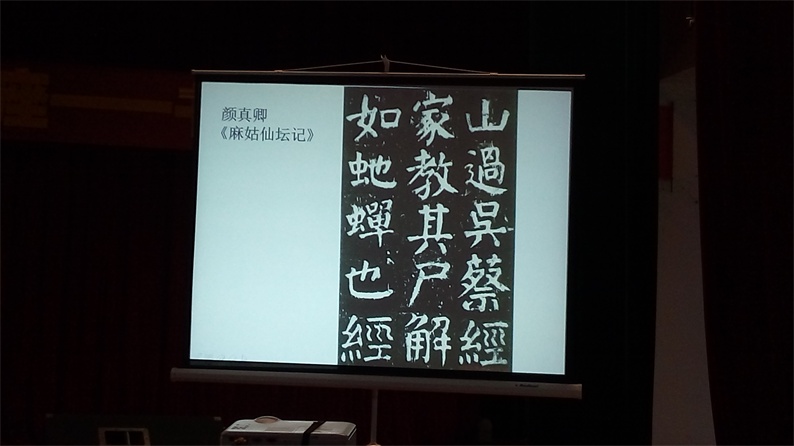 颜真卿
《麻姑仙坛记》
山過吳蔡經
家教其尸解
如虵蟬也經